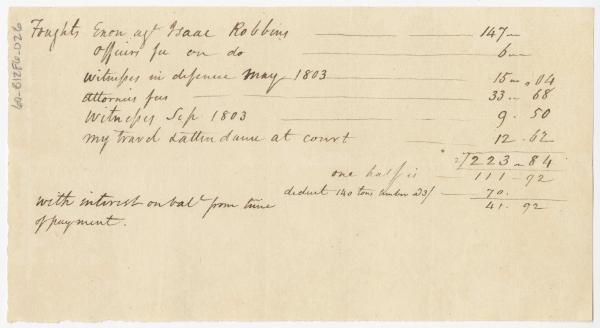 Foughts Exon agt Isaac Robbins 147 –
officers fee on do 6 –
witnesses in defence May 1803 15 – 04
attornies fees 33 – 68
Witnesses Sep 1803 9 . 50
my travel & attendance at court 12 . 62
2)223 – 84
one half is 111 – 92
deduct 140 tons timber a 3/ 70.
41 . 92
with interest on bale from time
of payment.
60-B12F10-026